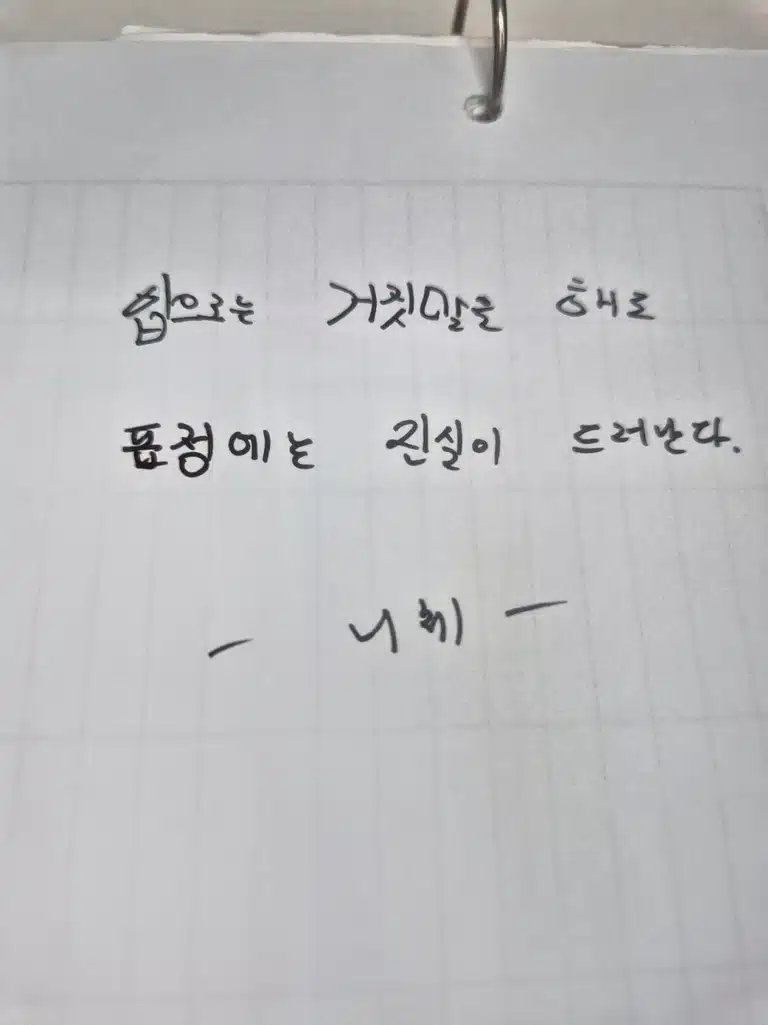 입으로는 거짓말을 해도
표정에는 진실이 드러난다.
- 니체 -